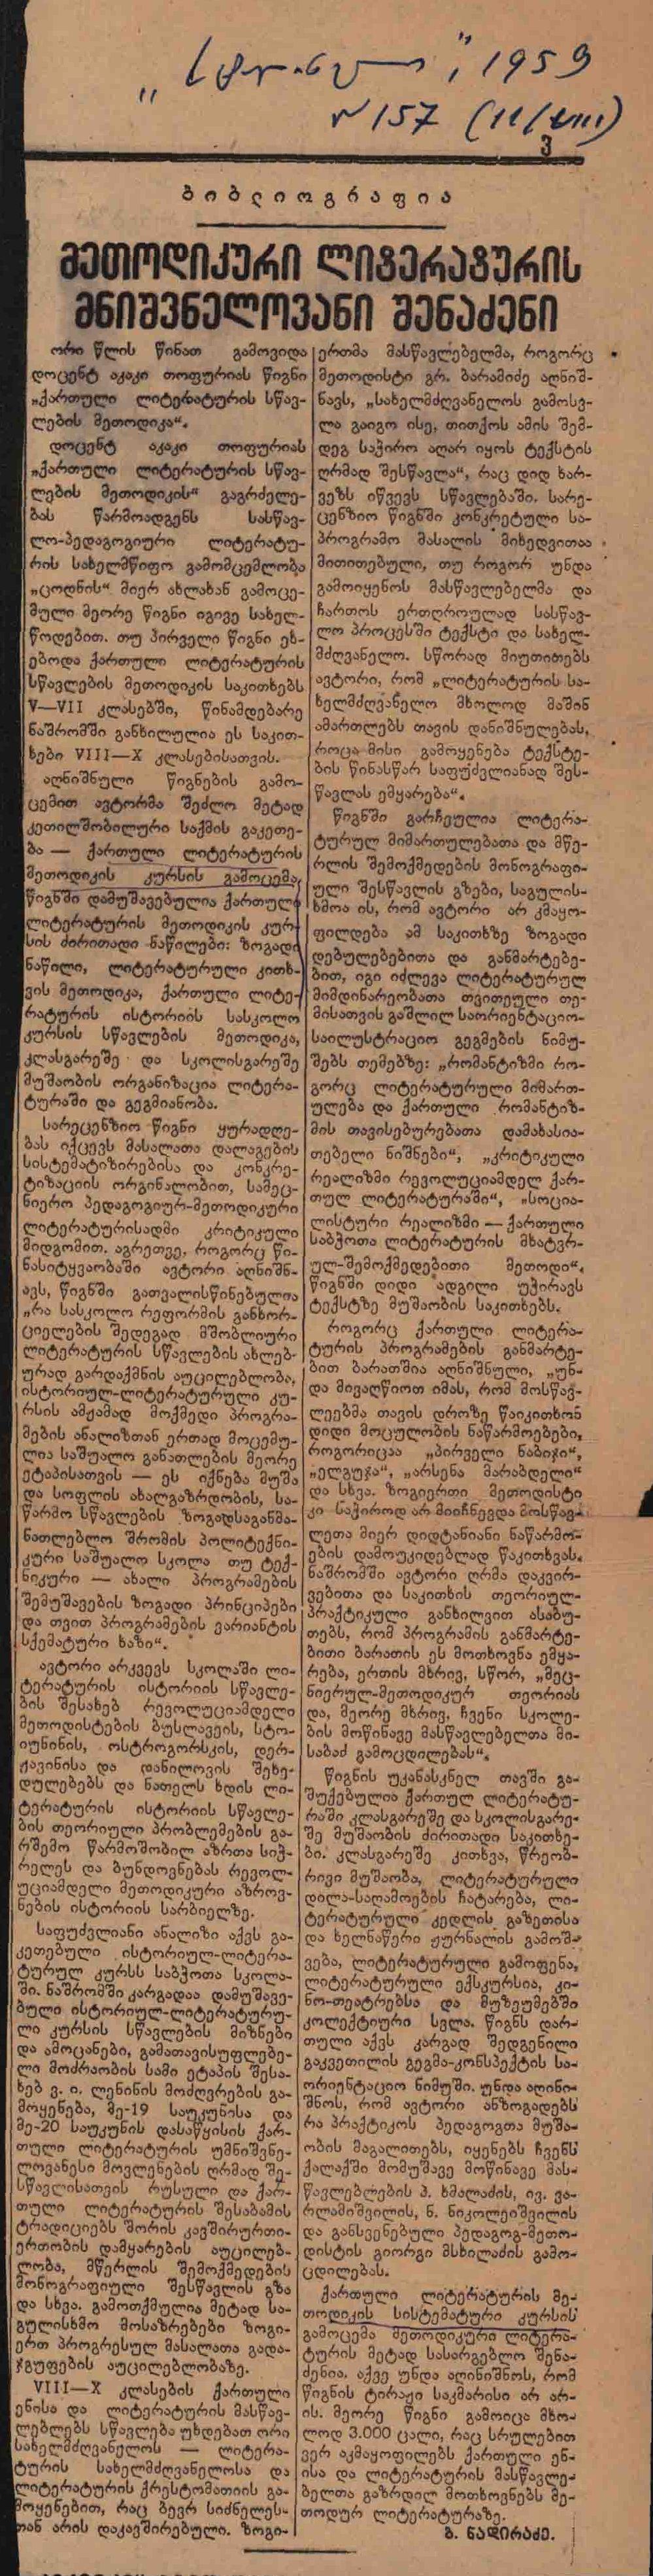 1959
157
3
ბიბლიოგრაფია
მეთოდიკური ლიტერატურის
მნიშვნელოვანი შენაძენი
ორი წლის წინათ გამოვიდა
დოცენტ აკაკი თოფურიას წიგნი
„ქართული ლიტერატურის სწავ-
ლების მეთოდიკა“.
დოცენტ აკაკი თოფურიას
„ქართული ლიტერატურის სწავ-
ლების მეთოდიკის“ გაგრძელე-
ბას წარმოადგენს სასწავ-
ლო-პედაგოგიური ლიტერატუ-
რის სახელმწიფო გამომცემლობა
„ცოდნის“ მიერ ახლახან გამოცე-
მული მეორე წიგნი იგივე სახელ-
წოდებით. თუ პირველი წიგნი ეხ-
ებოდა ქართული ლიტერატურის
სწავლების მეთოდიკის საკითხებს
V—VII კლასებში, წინამდებარე
ნაშრომში განხილულია ეს საკით-
ხები VIII—X კლასებისათვის.
აღნიშნული წიგნების გამო-
ცემით ავტორმა შეძლო მეტად
კეთილშობილური საქმის გაკეთე-
ბა — ქართული ლიტერატურის
მეთოდიკის კურსის გამოცემა,
წიგნში დამუშავებულია ქართული
ლიტერატურის მეთოდიკის კურ-
სის ძირითადი ნაწილები: ზოგადი
ნაწილი, ლიტერატურული კითხ-
ვის მეთოდიკა, ქართული ლიტე-
რატურის ისტორიის სასკოლო
კურსის სწავლების მეთოდიკა,
კლასგარეშე და სკოლისგარეშე
მუშაობის ორგანიზაცია ლიტერა-
ტურაში და გეგმიანობა.
სარეცენზიო წიგნი ყურადღე-
ბას იქცევს მასალათა დალაგების
სისტემატიზირებისა და კონკრე-
ტიზაციის ორგინალობით, სამეც-
ნიერო პედაგოგიურ-მეთოდიკური
ლიტერატურისადმი კრიტიკული
მიდგომით. აგრეთვე, როგორც წი-
ნასიტყვაობაში ავტორი აღნიშნ-
ავს, წიგნში გათვალისწინებულია
„რა სასკოლო რეფორმის განხორ-
ციელების შედეგად მშობლიური
ლიტერატურის სწავლების ახლებ-
ურად გარდაქმნის აუცილებლობა,
ისტორიულ-ლიტერატურული კუ-
რსის ამჟამად მოქმედი პროგრა-
მების ანალიზთან ერთად მოცემუ-
ლია საშუალო განათლების მეორე
ეტაპისათვის — ეს იქნება მუშა
და სოფლის ახალგაზრდობის, სა-
წარმო სწავლების ზოგადსაგანმა-
ნათლებლო შრომის პოლიტექნი-
კური საშუალო სკოლა თუ ტექ-
ნიკური — ახალი პროგრამების
შემუშავების ზოგადი პრინციპები
და თვით პროგრამების ვარიანტის
სქემატური ხაზი“.
ავტორი არკვევს სკოლაში ლი-
ტერატურის ისტორიის სწავლე-
ბის შესახებ რევოლუციამდელი
მეთოდისტების ბუსლავეის, სტო-
იუნინის, ოსტროგორსკის, დერ-
ჟავინისა და დანილოვის შეხე-
დულებებს და ნათელს ხდის ლი-
ტერატურის ისტორიის სწავლე-
ბის თეორიული პრობლემების გა-
რშემო წარმოშობილ აზრთა სიჭ-
რელეს და ბუნდოვნებას რევოლ-
უციამდელი მეთოდიკური აზროვ-
ნების ისტორიის სარბიელზე.
საფუძვლიანი ანალიზი აქვს გა-
კეთებული ისტორიულ-ლიტერა-
ტურულ კურსს საბჭოთა სკოლა-
ში. ნაშრომში კარგადაა დამუშავე-
ბული ისტორიულ-ლიტერატურუ-
ლი კურსის სწავლების მიზნები
და ამოცანები, გამათავისუფლებე-
ლი მოძრაობის სამი ეტაპის შესა-
ხებ ვ. ი. ლენინის მოძღვრების გა-
მოყენება, მე-19 საუკუნისა და
მე-20 საუკუნის დასაწყისის ქარ-
თული ლიტერატურის უმნიშვნე-
ლოვანესი მოვლენების ღრმად შე-
სწავლისათვის რუსული და ქარ-
თული ლიტერატურის შესაბამის
ტრადიციებს შორის კავშირურთი-
ერთობის დამყარების აუცილებ-
ლობა, მწერლის შემოქმედების
მონოგრაფიული შესწავლის გზა
და სხვა. გამოთქმულია მეტად სა-
გულისხმო მოსაზრებები ზოგი-
ერთ პროგრესულ მასალათა გადა-
ჯგუფების აუცილებლობაზე.
VIII—X კლასების ქართული
ენისა და ლიტერატურის მასწავ-
ლებლებს სწავლება უხდებათ ორი
სახელმძღვანელოს — ლიტერა-
ტურის სახელმძღვანელოსა და
ლიტერატურის ქრესტომათიის გა-
მოყენებით, რაც ბევრ სიძნელეს-
თან არის დაკავშირებული. ზოგი-
ერთმა მასწავლებელმა, როგორც
მეთოდისტი გრ. ბარამიძე აღნიშ-
ნავს, „სახელმძღვანელოს გამოსვ-
ლა გაიგო ისე, თითქოს ამის შემ-
დეგ საჭირო აღარ იყოს ტექსტის
ღრმად შესწავლა“, რაც დიდ ხარ-
ვეზს იწვევს სწავლებაში. სარე-
ცენზიო წიგნში კონკრეტული სა-
პროგრამო მასალის მიხედვითაა
მითითებული, თუ როგორ უნდა
გამოიყენოს მასწავლებელმა და
ჩართოს ერთდროულად სასწავ-
ლო პროცესში ტექსტი და სახელ-
მძღვანელო. სწორად მიუთითებს
ავტორი, რომ „ლიტერატურის სა-
ხელმძღვანელო მხოლოდ მაშინ
ამართლებს თავის დანიშნულებას,
როცა მისი გამოყენება ტექსტე-
ბის წინასწარ საფუძვლიანად შეს-
წავლას ემყარება“.
წიგნში გარჩეულია ლიტერა-
ტურულ მიმართულებათა და მწე-
რლის შემოქმედების მონოგრაფი-
ული შესწავლის გზები, საგულის-
ხმოა ის, რომ ავტორი არ კმაყო-
ფილდება ამ საკითხზე ზოგადი
დებულებებითა და განმარტებე-
ბით, იგი იძლევა ლიტერატურულ
მიმდინარეობათა თვითეული თე-
მისათვის გაშლილ საორიენტაციო-
საილუსტრაციო გეგმების ნიმუ-
შებს თემებზე: „რომანტიზმი რო-
გორც ლიტერატურული მიმართ-
ულება და ქართული რომანტიზ-
მის თავისებურებათა დამახასია-
თებელი ნიშნები“, „კრიტიკული
რეალიზმი რევოლუციამდელ ქარ-
თულ ლიტერატურაში“, „სოცია-
ლისტური რეალიზმი — ქართული
საბჭოთა ლიტერატურის მხატვრ-
ულ-შემოქმედებითი მეთოდი“.
წიგნში დიდი ადგილი უჭირავს
ტექსტზე მუშაობის საკითხებს.
როგორც ქართული ლიტერა-
ტურის პროგრამების განმარტე-
ბით ბარათშია აღნიშნული, „უნ-
და მივაღწიოთ იმას, რომ მოსწავ-
ლეებმა თავის დროზე წაიკითხონ
დიდი მოცულობის ნაწარმოებები,
როგორიცაა „პირველი ნაბიჯი“,
„ელგუჯა“, „არსენა მარაბდელი“
და სხვა. ზოგიერთი მეთოდისტი
კი საჭიროდ არ მიიჩნევდა მოსწავ-
ლეთა მიერ დიდტანიანი ნაწარმო-
ების დამოუკიდებლად წაკითხვას.
ნაშრომში ავტორი ღრმა დაკვირ-
ვებითა და საკითხის თეორიულ-
პრაქტიკული განხილვით ასაბუ-
თებს, რომ პროგრამის განმარტე-
ბითი ბარათის ეს მოთხოვნა ემყა-
რება, ერთის მხრივ, სწორ, „მეც-
ნიერულ-მეთოდიკურ თეორიას
და, მეორე მხრივ, ჩვენი სკოლე-
ბის მოწინავე მასწავლებელთა მი-
საბაძ გამოცდილებას“.
წიგნის უკანასკნელ თავში გა-
შუქებულია ქართულ ლიტერატუ-
რაში კლასგარეშე და სკოლისგარე-
შე მუშაობის ძირითადი საკითხე-
ბი. კლასგარეშე კითხვა, წრეობ-
რივი მუშაობა, ლიტერატურული
დილა-საღამოების ჩატარება, ლი-
ტერატურული კედლის გაზეთისა
და ხელნაწერი ჟურნალის გამოშ-
ვება, ლიტერატურული გამოფენა,
ლიტერატურული ექსკურსია, კი-
ნო-თეატრებსა და მუზეუმებში
კოლექტიური სვლა. წიგნს დარ-
თული აქვს კარგად შედგენილი
გაკვეთილის გეგმა-კონსპექტის სა-
ორიენტაციო ნიმუში. უნდა აღინი-
შნოს, რომ ავტორი ანზოგადებს
რა პრაქტიკოს პედაგოგთა მუშა-
ობის მაგალითებს, იყენებს ჩვენს
ქალაქში მომუშავე მოწინავე მას-
წავლებლების პ. ხმალაძის, ივ. ვა-
რლამიშვილის, ნ. ნიკოლეიშვილის
და განსვენებული პედაგოგ-მეთო-
დისტის გიორგი მსხილაძის გამო-
ცდილებას.
ქართული ლიტერატურის მე-
თოდიკის სისტემატური კურსის
გამოცემა მეთოდიკური ლიტერა-
ტურის მეტად სასარგებლო შენა-
ძენია. აქვე უნდა აღინიშნოს, რომ
წიგნის ტირაჟი საკმარისი არ არ-
ის. მეორე წიგნი გამოიცა მხო-
ლოდ 3.000 ცალი, რაც სრულებით
ვერ აკმაყოფილებს ქართული ენ-
ისა და ლიტერატურის მასწავლე-
ბელთა გაზრდილ მოთხოვნებს მე-
თოდურ ლიტერატურაზე.
გ. ნადირაძე.